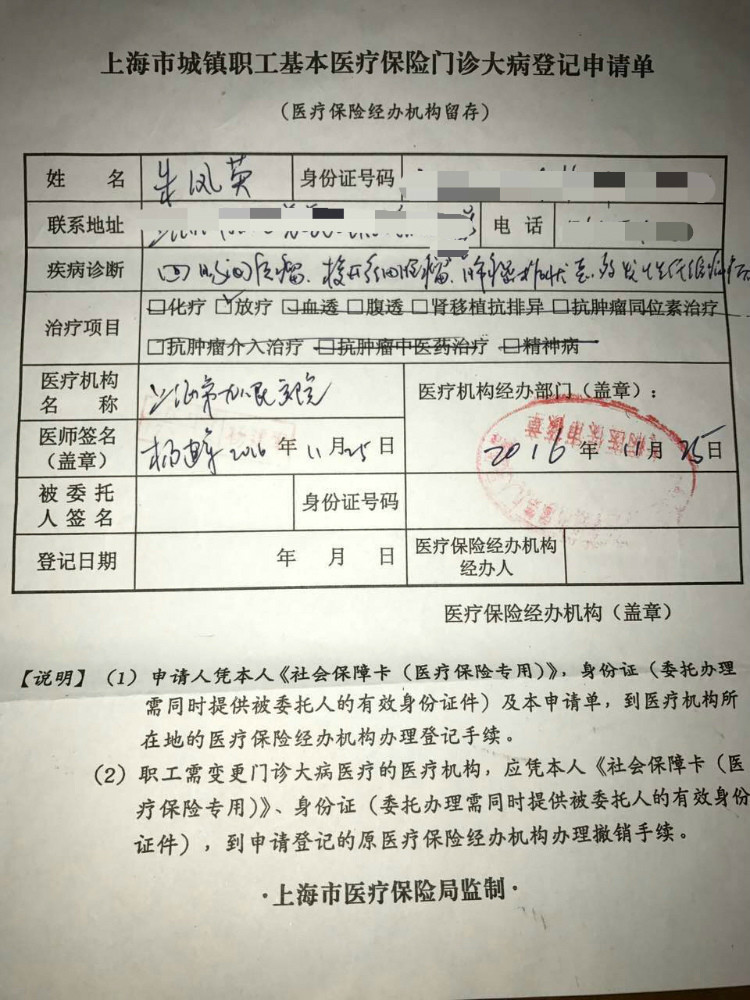 上海市城镇职工基本医疗保险门诊大病登记申请单
(医疗保险经办机构留存)
姓 名 朱凤英 身份证号码
联系地址 电 话
疾病诊断
治疗项目 □化疗 ☑放疗 □血透 □腹透 □肾移植抗排异 □抗肿瘤同位素治疗
□抗肿瘤介入治疗 □抗肿瘤中医药治疗 □精神病
医疗机构 医疗机构经办部门(盖章):
名 称
医师签名 2016 年 11 月 25 日 2016 年 11 月 25 日
(盖章)
被 委 托 身份证号码
人 签 名
登记日期 年 月 日 医疗保险经办机构
经办人
医疗保险经办机构(盖章)
【说明】(1) 申请人凭本人《社会保障卡(医疗保险专用)》,身份证(委托办理
需同时提供被委托人的有效身份证件)及本申请单,到医疗机构所
在地的医疗保险经办机构办理登记手续。
(2) 职工需变更门诊大病医疗的医疗机构,应凭本人《社会保障卡(医
疗保险专用)》、身份证(委托办理需同时提供被委托人的有效身份
证件),到申请登记的原医疗保险经办机构办理撤销手续。
·上海市医疗保险局监制·